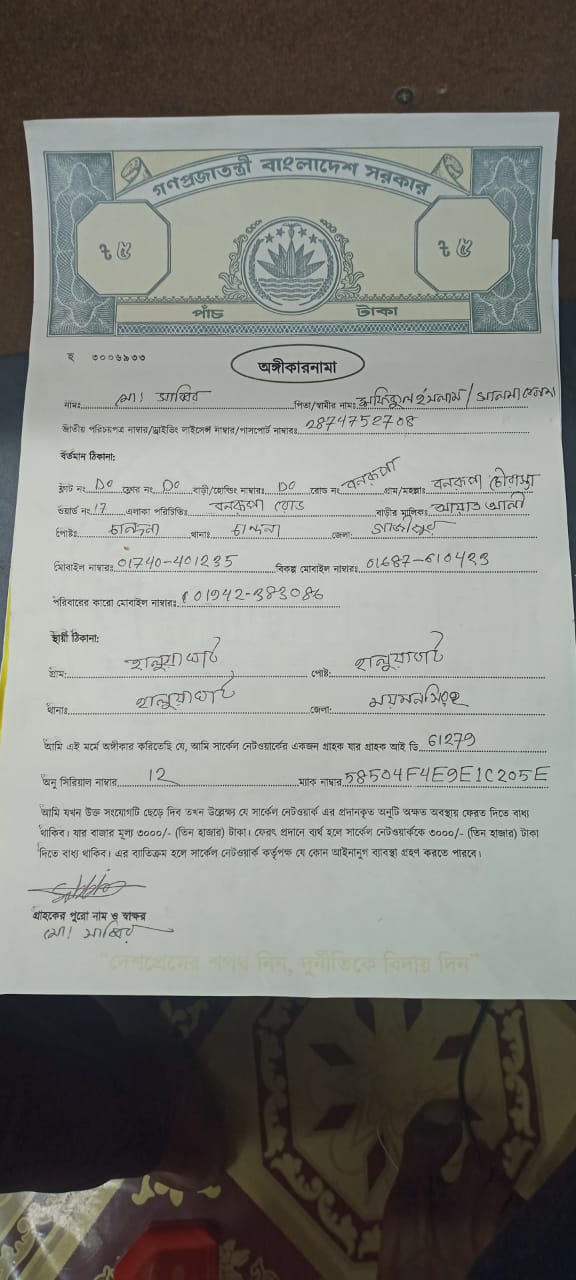 গণপ্রজাতন্ত্রী বাংলাদেশ সরকার
৳ ৫ ৳ ৫
পাঁচ টাকা
হ ৩০০৬৯৩৩
অঙ্গীকারনামা
নাম: মো। সাব্বির পিতা/স্বামীর নাম:
জাতীয় পরিচয়পত্র নাম্বার/ড্রাইভিং লাইসেন্স নাম্বার/পাসপোর্ট নাম্বারঃ 2874752708
বর্তমান ঠিকানা:
ফ্লাট নং DO ফ্লোর নং DO বাড়ী/হোল্ডিং নাম্বারঃ DO রোড নং বনরূপা গ্রাম/মহল্লাঃ বনরূপা চৌরাস্তা
ওয়ার্ড নং 17 এলাকা পরিচিতিঃ বনরূপা রোড বাড়ীর মালিকঃ আয়াত আলী
পোষ্টঃ চান্দনা থানাঃ চান্দনা জেলা: গাজীপুর
মোবাইল নাম্বারঃ 01740-401235 বিকল্প মোবাইল নাম্বারঃ 01687-610423
পরিবারের কারো মোবাইল নাম্বারঃ 01942-383086
স্থায়ী ঠিকানা:
গ্রাম: হালুয়াঘাট পোষ্ট: হালুয়াঘাট
থানাঃ হালুয়াঘাট জেলা: ময়মনসিংহ
আমি এই মর্মে অঙ্গীকার করিতেছি যে, আমি সার্কেল নেটওয়ার্কের একজন গ্রাহক যার গ্রাহক আই ডি 61279
অনু সিরিয়াল নাম্বার 12 ম্যাক নাম্বার 58504F4E9E1C205E
আমি যখন উক্ত সংযোগটি ছেড়ে দিব তখন উল্লেক্ষ্য যে সার্কেল নেটওয়ার্ক এর প্রদানকৃত অনুটি অক্ষত অবস্থায় ফেরত দিতে বাধ্য
থাকিব। যার বাজার মূল্য ৩০০০/- (তিন হাজার) টাকা। ফেরৎ প্রদানে ব্যর্থ হলে সার্কেল নেটওয়ার্ককে ৩০০০/- (তিন হাজার) টাকা
দিতে বাধ্য থাকিব। এর ব্যতিক্রম হলে সার্কেল নেটওয়ার্ক কর্তৃপক্ষ যে কোন আইনানুগ ব্যাবস্থা গ্রহণ করতে পারবে।
গ্রাহকের পুরো নাম ও স্বাক্ষর
মো। সাব্বির
"দেশপ্রেমের শপথ নিন, দুর্নীতিকে বিদায় দিন"